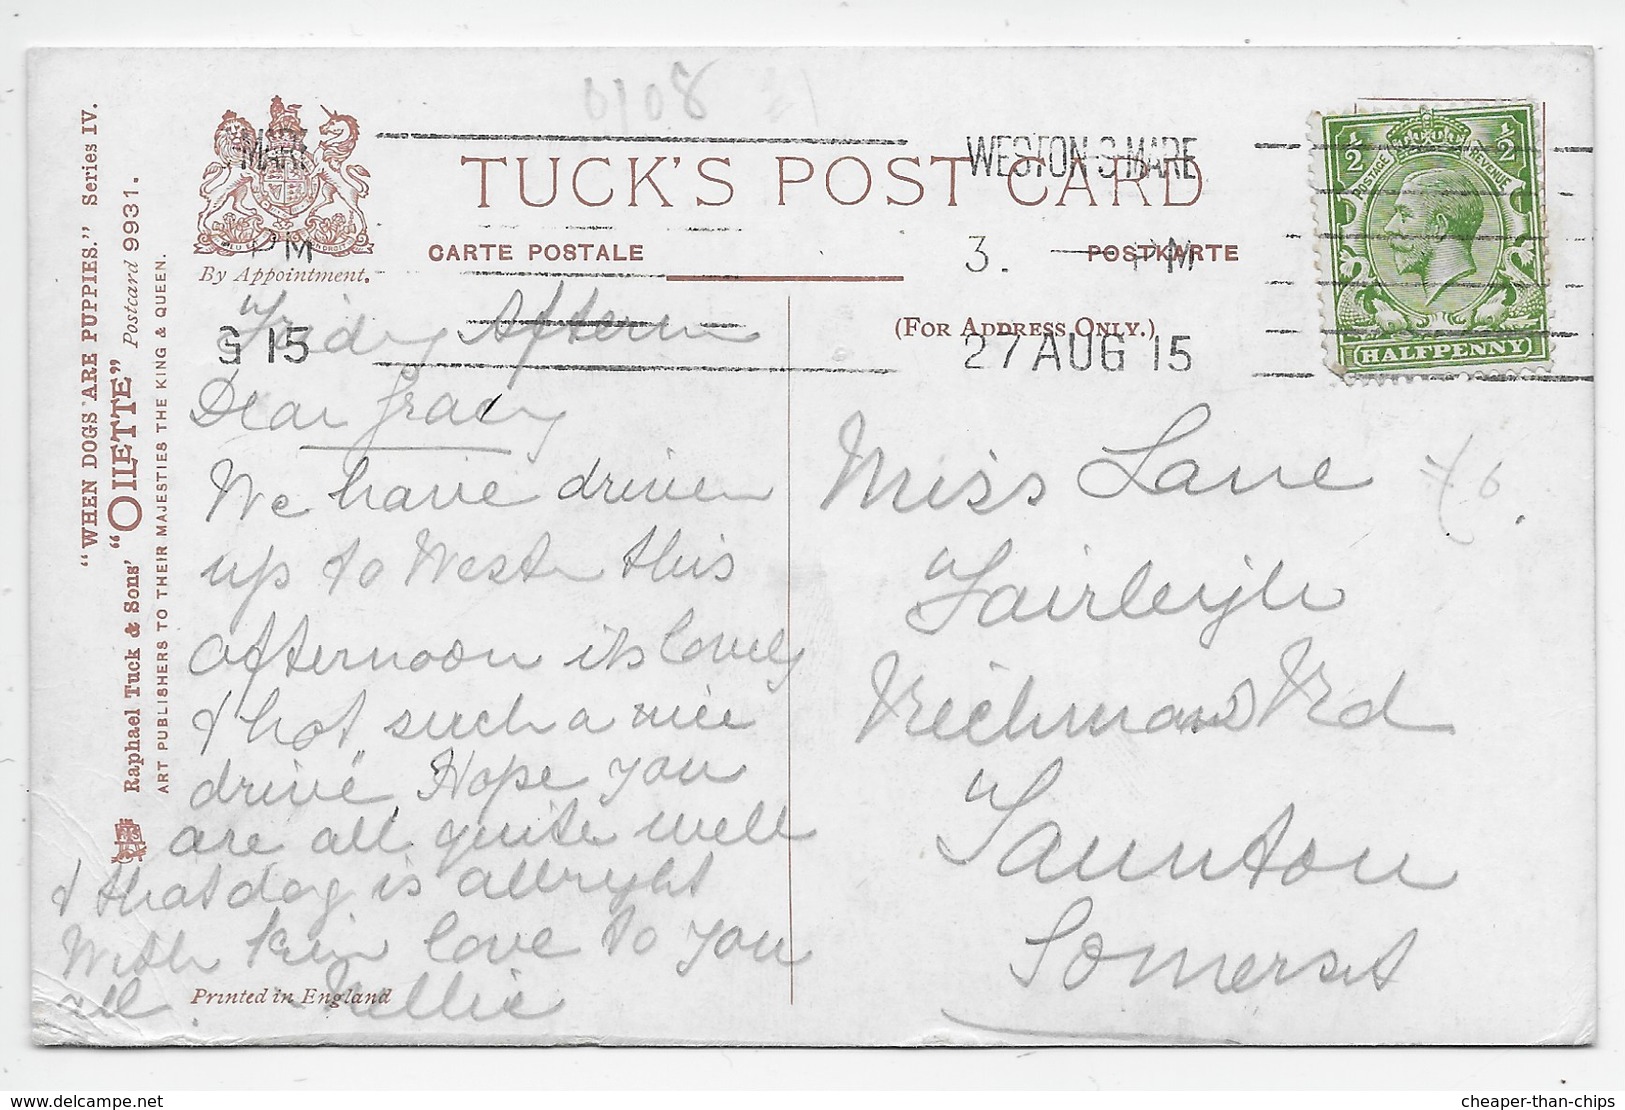 0108 21
"WHEN DOGS ARE PUPPIES." Series IV.
Raphael Tuck & Sons' "OILETTE" Postcard 9931.
ART PUBLISHERS TO THEIR MAJESTIES THE KING & QUEEN.
By Appointment.
TUCK'S POST CARD
CARTE POSTALE
POSTKARTE
(FOR ADDRESS ONLY.)
WESTON-S-MARE
3. PM
27 AUG 15
MARE
PM
G 15
POSTAGE REVENUE
½ ½
HALFPENNY
Friday Aftern
Dear Gracy
We have driven
up to Weston this
afternoon its lovely
& hot, such a nice
drive, Hope you
are all quite well
& that dog is allright
With love to you
all. Nellie
Printed in England
Miss Lane
Fairleigh
Richmond Rd
Taunton
Somerset
delcampe.net
cheaper-than-chips